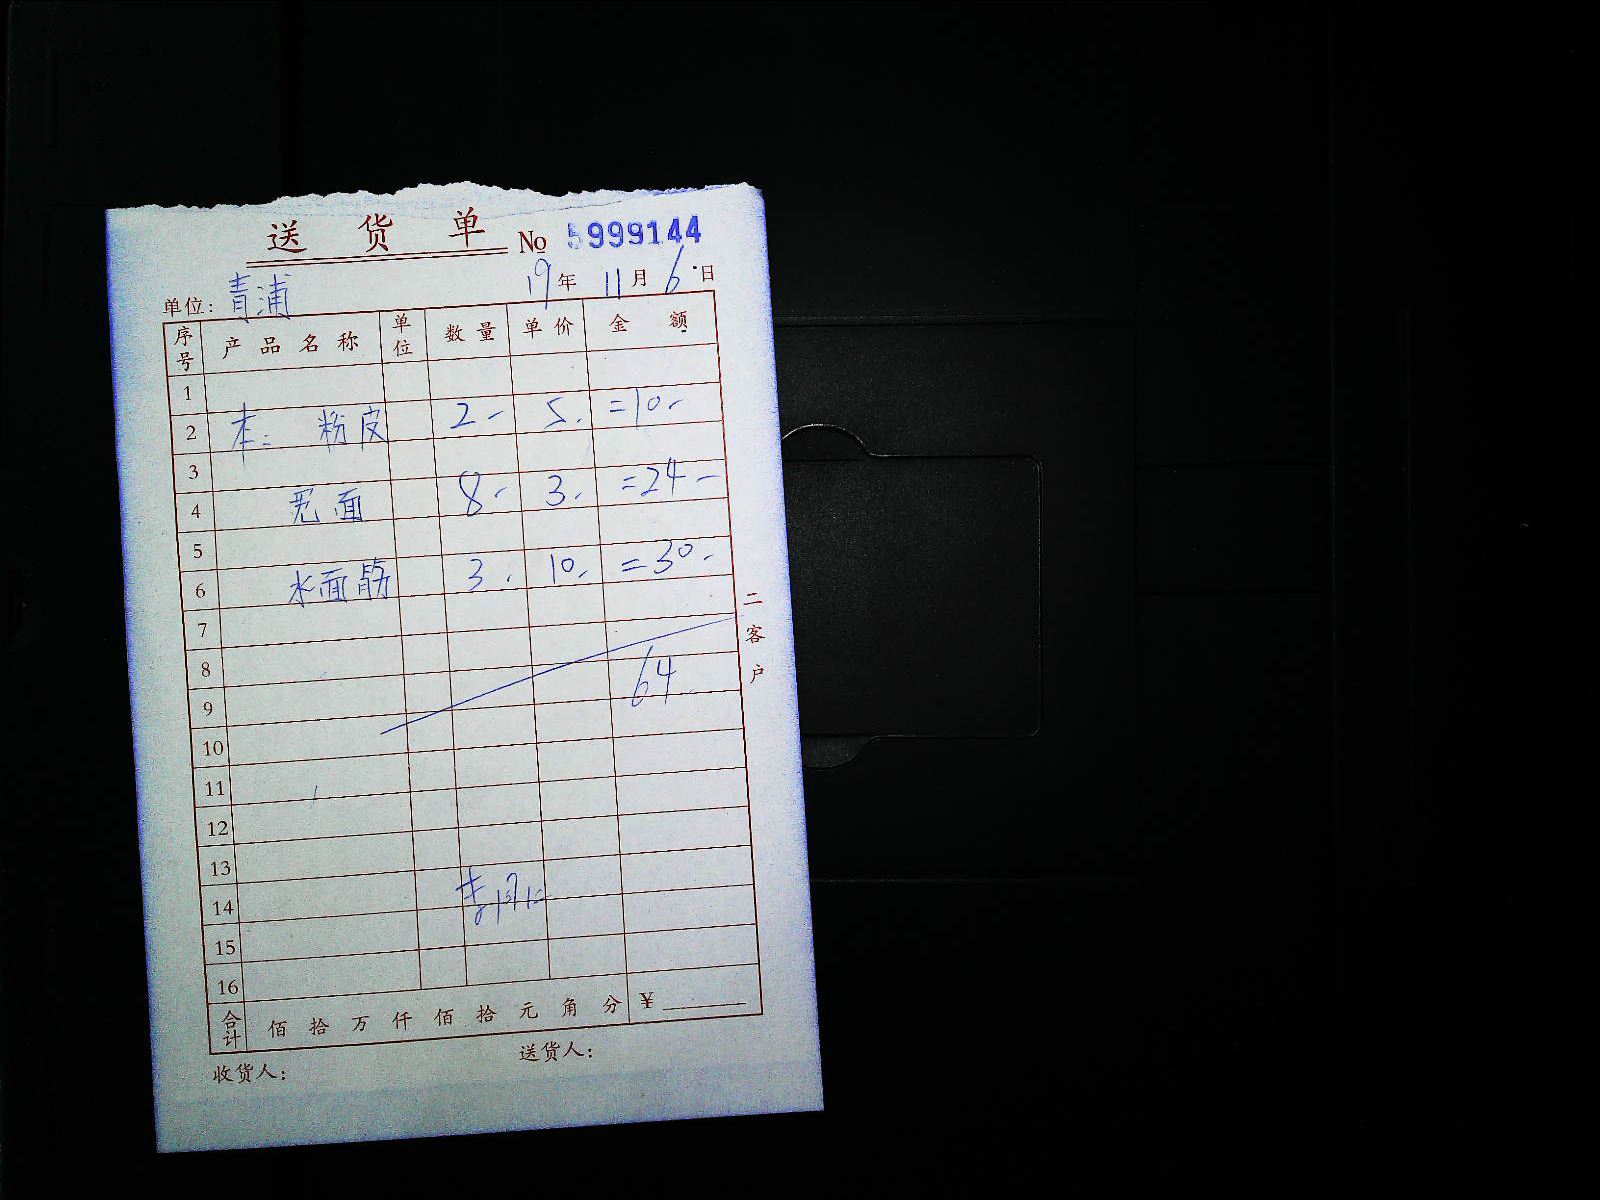 送货单 No 5999144
单位：青浦 19年 11月 6日
序号 产品名称 单位 数量 单价 金额
1
2 本： 粉皮 2- 5. =10-
3
4 宽面 8- 3. =24-
5
6 水面筋 3. 10. =30-
7
8
9 64.
10
11
12
13
14
15
16
合计 佰拾万仟佰拾元角分 ¥
收货人： 送货人：
二客户